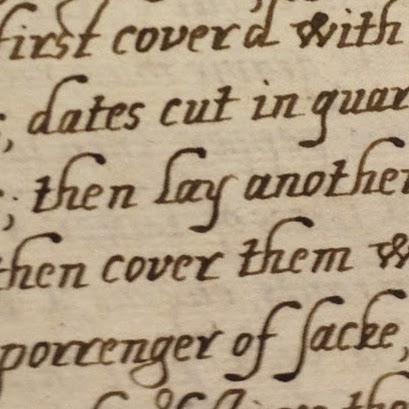 first coverd with
; dates cut in quar
; then lay another
then cover them w
porrenger of sacke,